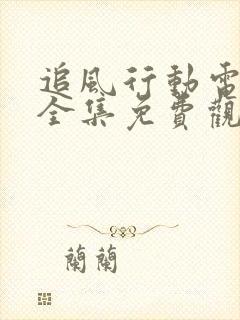 追風行動電
全集免費觀
蘭蘭